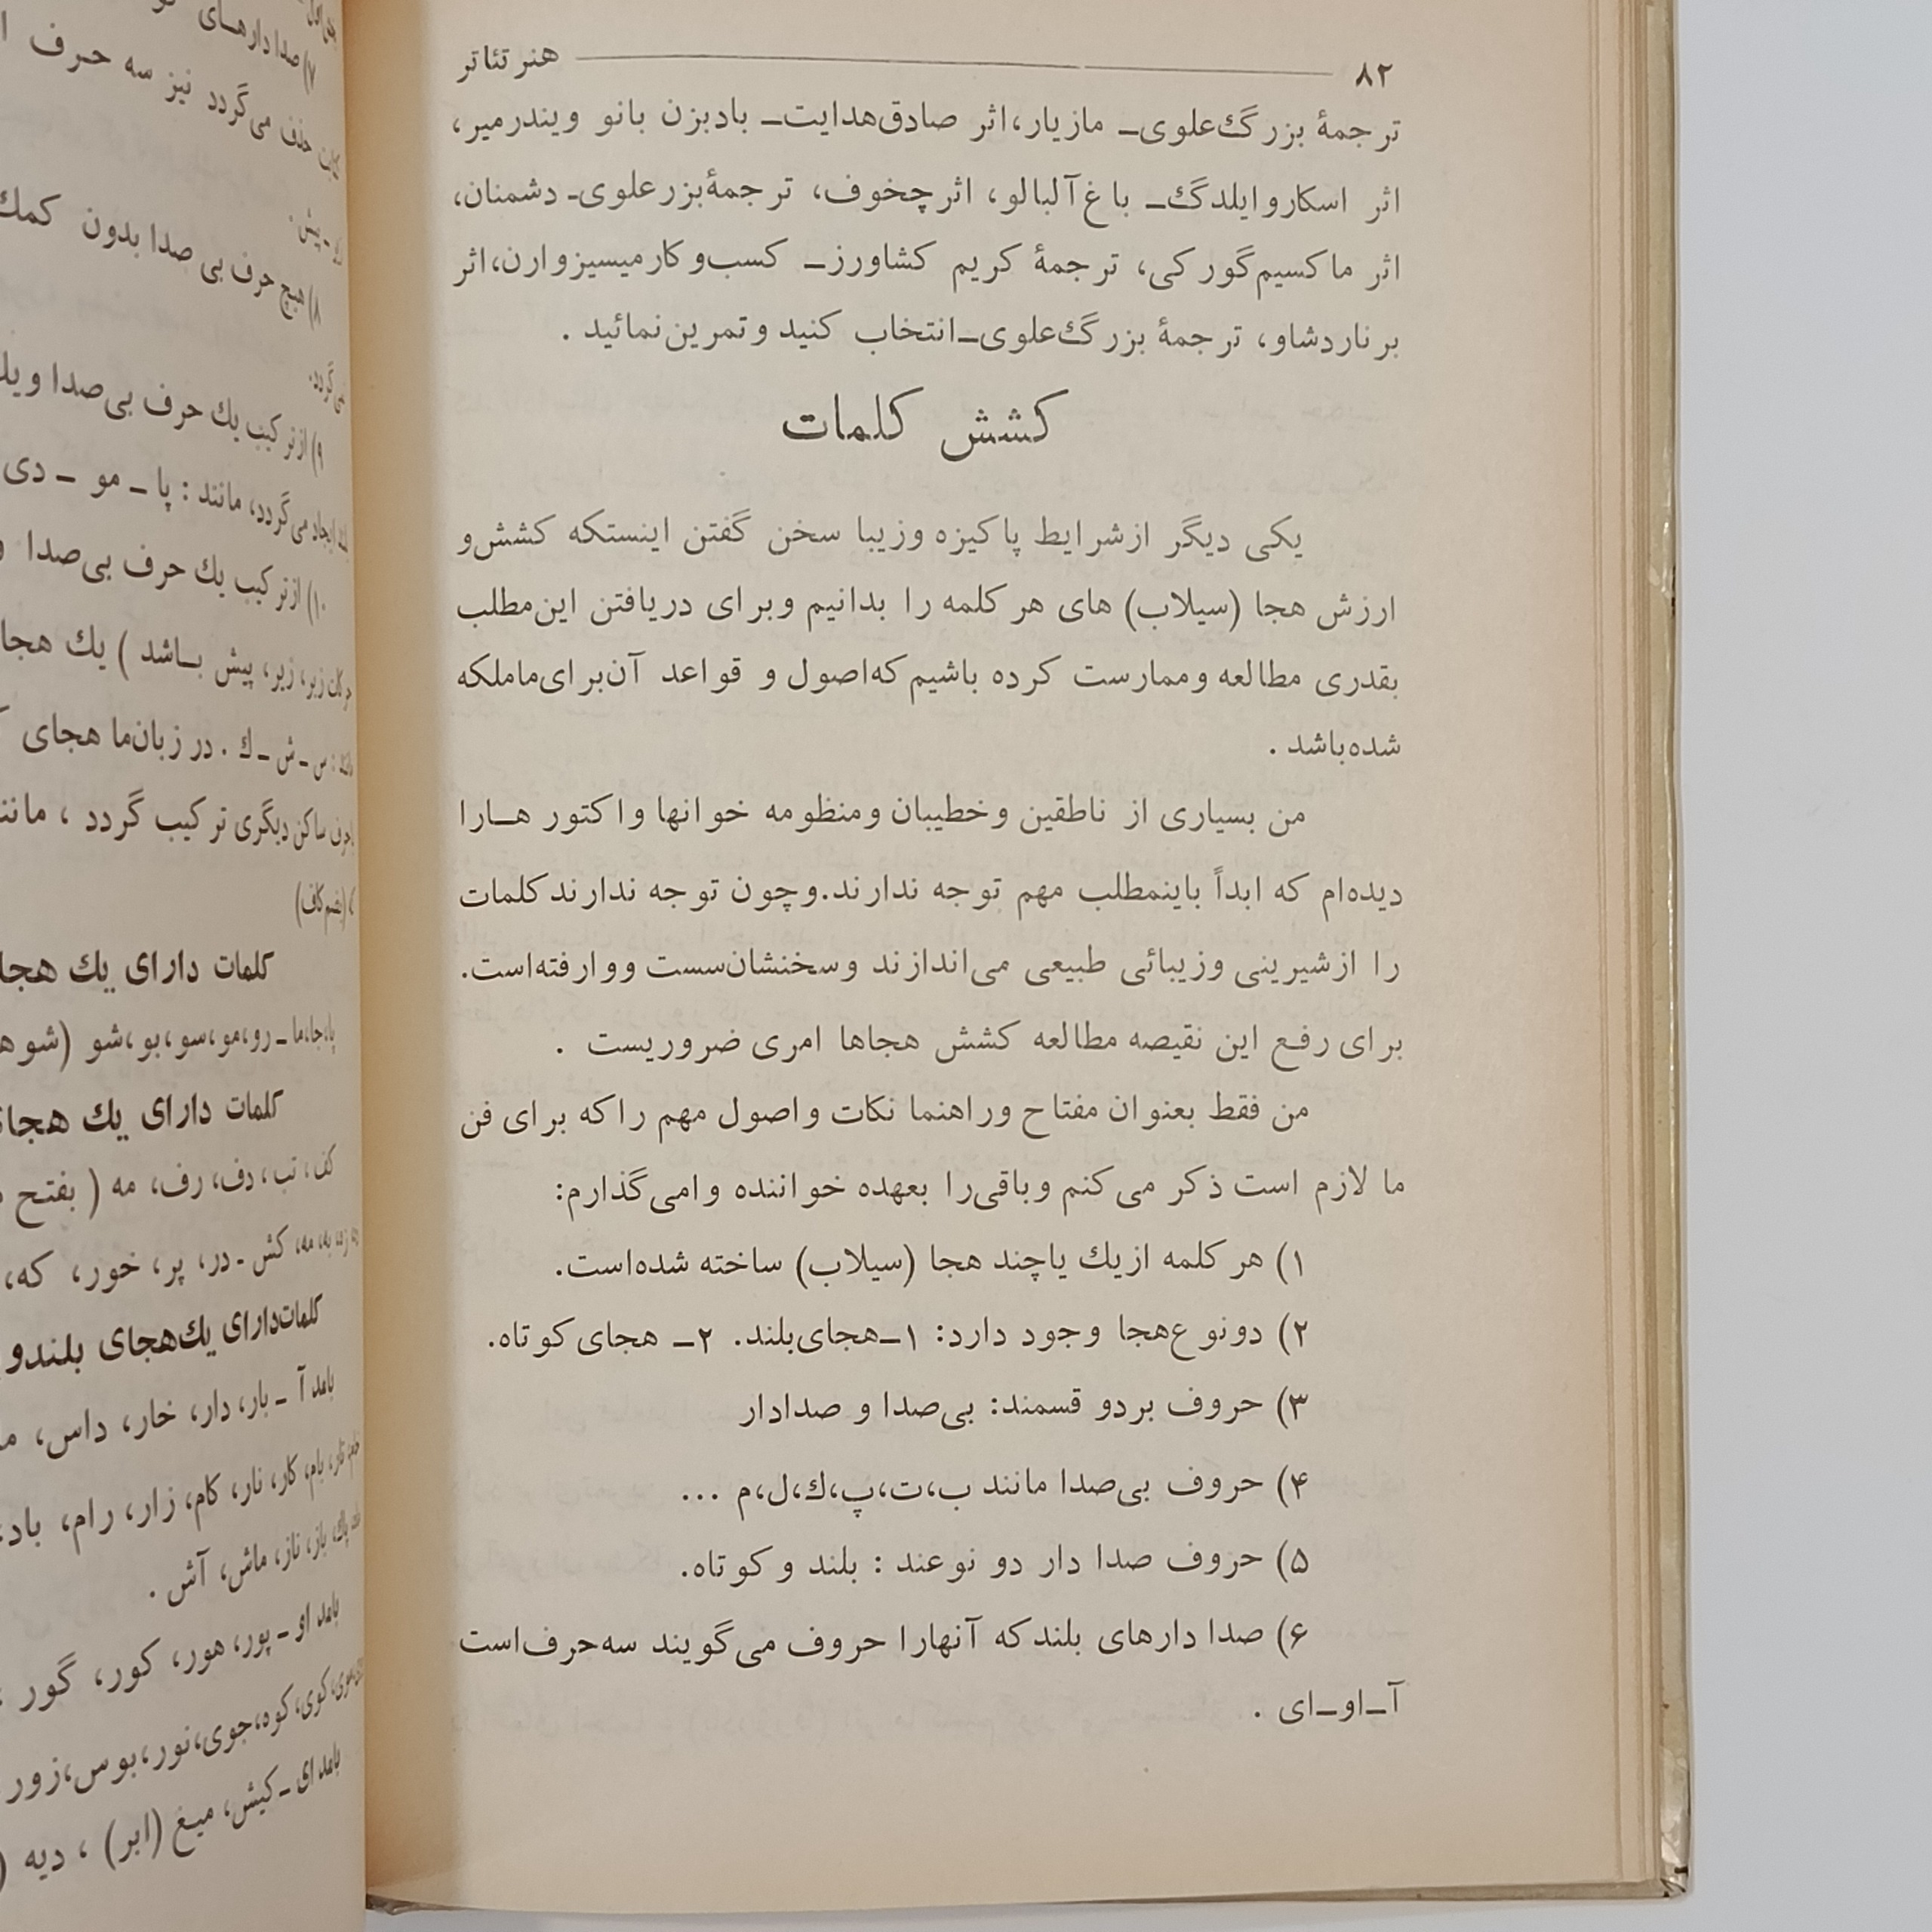 ۸۲ هنر تئاتر
ترجمهٔ بزرگ‌علوی ـ مازیار، اثر صادق‌هدایت ـ بادبزن بانو ویندرمیر،
اثر اسکاروایلدگ ـ باغ آلبالو، اثر چخوف، ترجمهٔ بزرعلوی ـ دشمنان،
اثر ماکسیم‌گورکی، ترجمهٔ کریم کشاورز ـ کسب‌و کار میسیز وارن، اثر
برناردشاو، ترجمهٔ بزرگ‌علوی ـ انتخاب کنید و تمرین‌نمائید .
کشش کلمات
یکی دیگر ازشرایط پاکیزه وزیبا سخن گفتن اینستکه کشش‌و
ارزش هجا (سیلاب) های هر کلمه را بدانیم وبرای دریافتن این‌مطلب
بقدری مطالعه وممارست کرده باشیم که‌اصول و قواعد آن‌برای‌ماملکه
شده‌باشد .
من بسیاری از ناطقین وخطیبان ومنظومه خوانها واکتور هارا
دیده‌ام که ابداً باینمطلب مهم توجه ندارند. وچون توجه ندارند کلمات
را ازشیرینی وزیبائی طبیعی می‌اندازند وسخنشان‌سست ووارفته‌است.
برای رفع این نقیصه مطالعه کشش هجاها امری ضروریست .
من فقط بعنوان مفتاح وراهنما نکات واصول مهم راکه برای فن
ما لازم است ذکر می‌کنم وباقی‌را بعهده خواننده وامی‌گذارم:
۱) هر کلمه ازیك یاچند هجا (سیلاب) ساخته شده‌است.
۲) دونوع‌هجا وجود دارد: ۱ـ هجای‌بلند. ۲ـ هجای کوتاه.
۳) حروف بردو قسمند: بی‌صدا و صدادار
۴) حروف بی‌صدا مانند ب،ت،پ،ك،ل،م ...
۵) حروف صدا دار دو نوعند : بلند و کوتاه.
۶) صدا دارهای بلندکه آنهارا حروف می‌گویند سه‌حرف‌است
آ ـ او ـ ای .
۷) صدا دارهای
حذف می‌گردد نیز سه حرف
ـ پیش.
۸) هیچ حرف بی صدا بدون کمك
۹) ازترکیب یك حرف بی‌صدا ویك
ایجاد می‌گردد، مانند : پا ـ مو ـ دی
۱۰) ازترکیب یك حرف بی‌صدا
زیر، پیش باشد ) یك هجا
س ـ ش ـ ك . در زبان‌ما هجای
ساکن دیگری ترکیب گردد ،
(بضم‌کاف)
کلمات دارای یك هجا
پا،جا،ما ـ رو،مو،سو،بو،شو (شو
کلمات دارای یك
کف ، تب ، دف، رف، مه ( بفتح
کش ـ در، پر، خور، که،
کلمات‌دارای یك‌هجای بلندو
بامد آ ـ بار، دار، خار، داس،
بام، کار، نار، کام، زار، رام، باد،
پاك، باز، ناز، ماش، آش .
بامد او ـ پور، هور، کور، گور
کوی، کوه،جوی،نور،بوس،زور
بامد ای ـ کیش، میغ (ابر) ، دیه